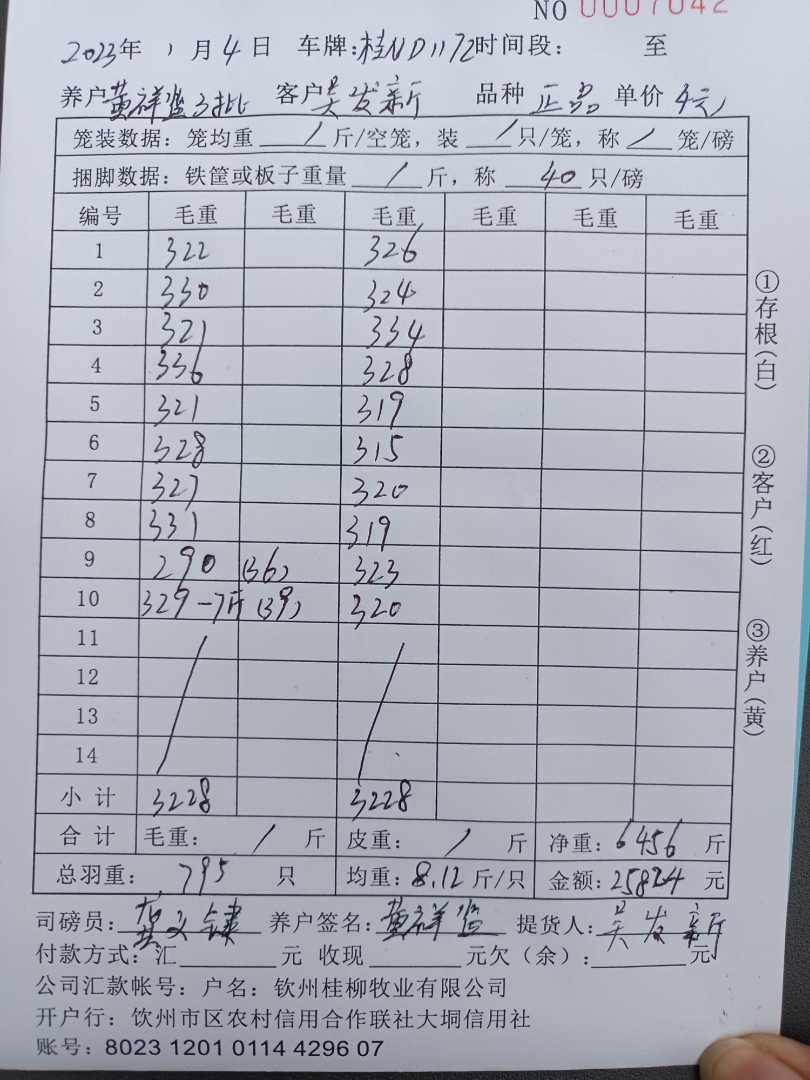 NO 0007042
2023年 1月4日 车牌:桂ND1172时间段: 至
养户黄祥监3批 客户吴发新 品种 正品 单价 4元
笼装数据: 笼均重 / 斤/空笼, 装 / 只/笼, 称 / 笼/磅
捆脚数据: 铁筐或板子重量 / 斤, 称 40 只/磅
编号 毛重 毛重 毛重 毛重 毛重 毛重
1 322 326
2 330 324
3 321 334
4 336 328
5 321 319
6 328 315
7 327 320
8 331 319
9 290 (36) 323
10 329-7斤 (39) 320
11
12
13
14
小计 3228 3228
合计 毛重: / 斤 皮重: / 斤 净重: 6456 斤
总羽重: 795 只 均重: 8.12 斤/只 金额: 25824 元
司磅员: 养户签名: 黄祥监 提货人: 吴发新
付款方式: 汇 元 收现 元欠(余): 元
公司汇款帐号: 户名: 钦州桂柳牧业有限公司
开户行: 钦州市区农村信用合作联社大垌信用社
账号: 8023 1201 0114 4296 07
①存根(白)
②客户(红)
③养户(黄)